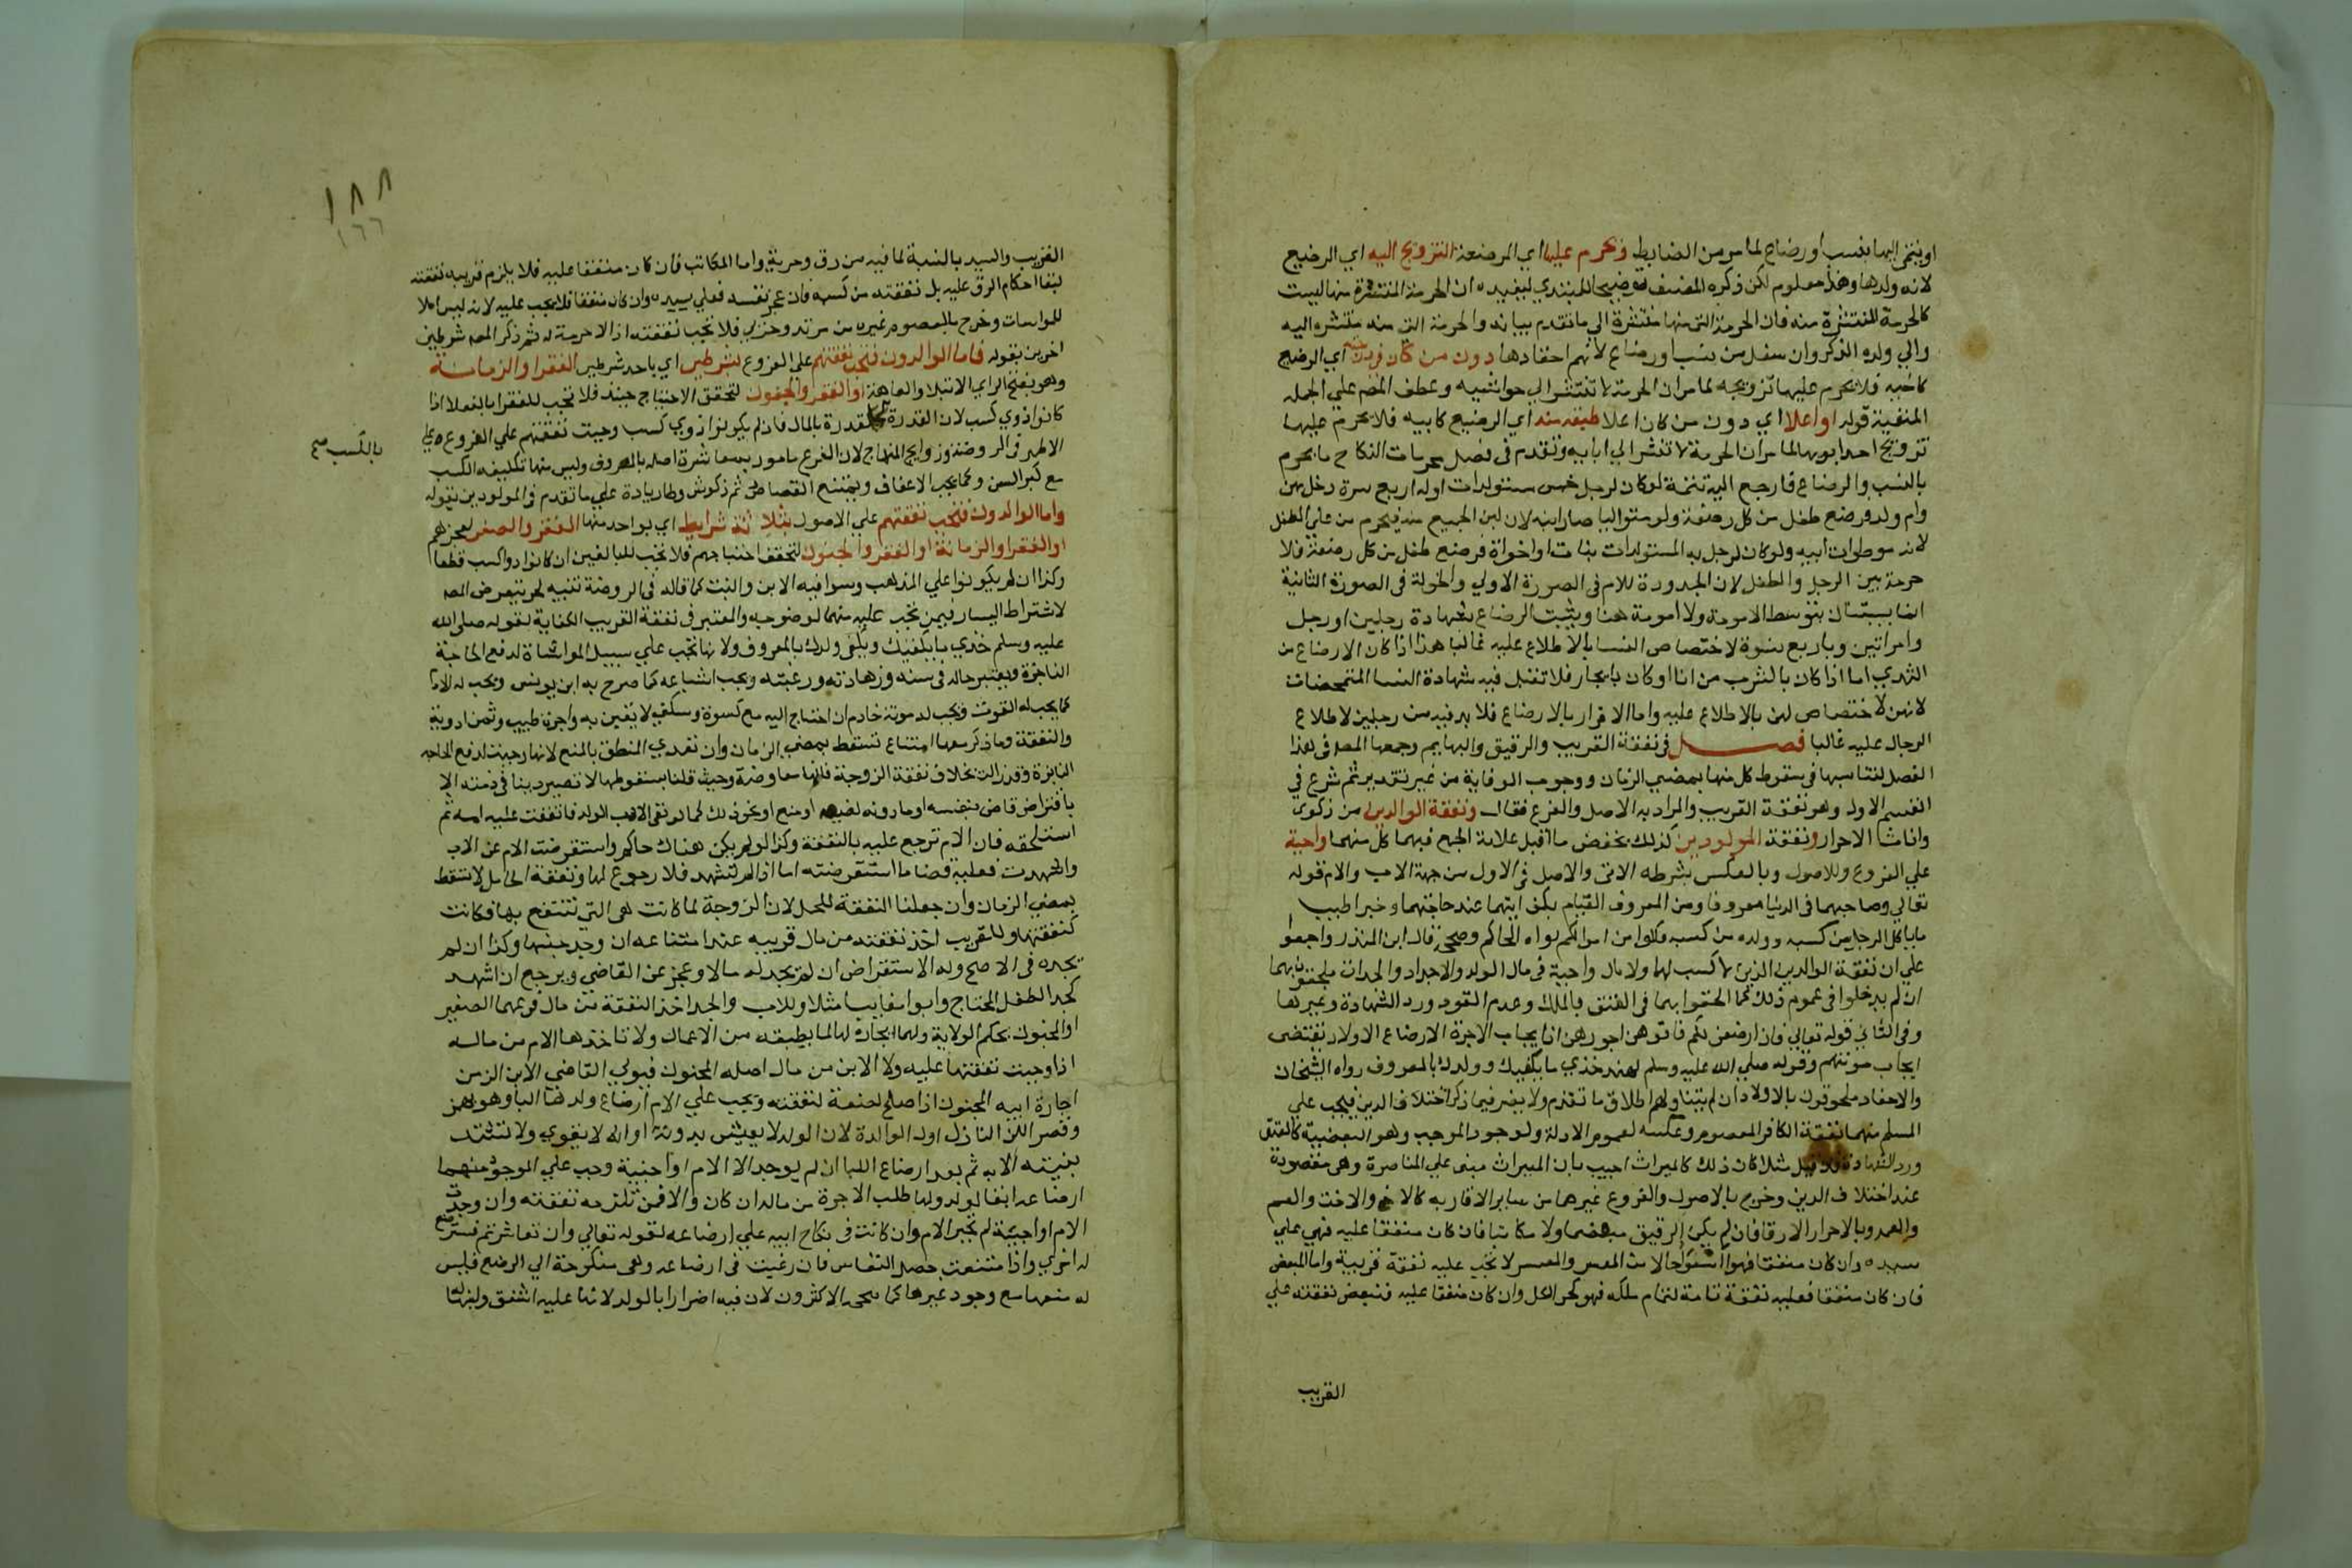 او ينتمي اليها بنسب او رضاع لما مر من الضابط ويحرم عليها اي المرضعة التزويج اليه اي الرضيع
لانه ولدها وهذا معلوم لكن ذكره المصنف توضيحا للمبتدي ليفيده ان الحرمة المنتشرة منها ليست
كالحرمة المنتشرة منه فان الحرمة التي منها منتشرة الي ما تقدم بيانه والحرمة التي منه منتشره اليه
والي ولده الذكر وان سفل من نسب او رضاع لانهم احفادها دون من كان في درجته اي الرضيع
كاخيه فلا يحرم عليها تزويجه لما مر ان الحرمة لا تنتشر الي حواشيه وعطف المص علي الجمله
المنفية قوله او اعلا اي دون من كان اعلا طبقه منه اي الرضيع كابيه فلا يحرم عليها
تزويج احد ابويها لما مر ان الحرمة لا تنشر الي ابايه وتقدم في فصل محرمات النكاح ما يحرم
بالنسب والرضاع فارجع اليه تتمة لو كان لرجل خمس مستولدات او له اربع نسوة دخل بهن
وام ولد فرضع طفل من كل رضعة ولو متواليا صار ابنه لان لبن الجميع منه فيحرم من علي الطفل
لانه موطوات ابيه ولو كان لرجل بدل المستولدات بنات او اخواة فرضع طفل من كل رضعة فلا
حرمة بين الرجل والطفل لان الجدودة للام في الصورة الاولي والخولة في الصورة الثانية
انما يثبتان بتوسط الامومة ولا امومة هنا ويثبت الرضاع بشهادة رجلين او رجل
وامراتين وباربع نسوة لاختصاص النسا بالاطلاع عليه غالبا هذا اذا كان الارضاع من
الثدي اما اذا كان بالشرب من انا او كان بايجار فلا تقبل فيه شهادة النسا المتمحضات
لانهن لا اختصاص لهن بالاطلاع عليه واما الاقرار بالارضاع فلا بد فيه من رجلين لاطلاع
الرجال عليه غالبا فصل في نفقة القريب والرقيق والبهايم وجمعها المصه في هذا
الفصل لتناسبها في سقوط كل منها بمضي الزمان ووجوب الوفاية من غير تقدير ثم شرع في
القسم الاول وهو نفقة القريب والمراد به الاصل والفرع فقال ونفقة الوالدين من ذكور
واناث الاحرار ونفقة المولودين كذلك بخفض ما قبل علامة الجمع فيهما كل منهما واجبة
علي الفروع وللاصول وبالعكس بشرطه الاتي والاصل في الاول من جهة الاب والام قوله
تعالي وصاحبهما في الدنيا معروفا ومن المعروف القيام بكفايتهما عند حاجتهما وخبر اطيب
ما ياكل الرجل من كسبه وولده من كسبه فكلوا من اموالكم رواه الحاكم وصححه قال ابن المنذر واجمعوا
علي ان نفقة الوالدين الذين لا كسب لهما ولا مال واجبة في مال الولد والاجداد والجدات ملحقون بهما
ان لم يدخلوا في عموم ذلك كما الحقوا بهما في العتق بالملك وعدم القود ورد الشهادة وغيرها
وفي الثاني قوله تعالي فان ارضعن لكم فاتوهن اجورهن اذ ايجاب الاجرة لارضاع الاولاد يقتضى
ايجاب مونتهم وقوله صلي الله عليه وسلم لهند خذي ما يكفيك وولدك بالمعروف رواه الشيخان
والاحفاد ملحوقون بالاولاد ان لم يتناولهم اطلاق ما تقدم ولا يضر فيما ذكر اختلاف الدين فيجب علي
المسلم منهما نفقة الكافر المعصوم وعكسه لعموم الادلة ولوجود الموجب وهو البعضية كالعتق
ورد الشهادة فان قيل مثلا كان ذلك كالميراث اجيب بان الميراث مبنى علي المناصرة وهي مفقودة
عند اختلاف الدين وخرج بالاصول والفروع غيرهما من ساير الاقارب كالاخ والاخت والعم
والعمه وبالاحرار الارقا فان لم يكن الرقيق مبعضا ولا مكاتبا فان كان منفقا عليه فهي علي
سيده وان كان منفقا فهو اسوء حالا من المعسر والمعسر لا تجب عليه نفقة قريبة واما المبعض
فان كان منفقا فعليه نفقة تامة لتمام ملكه فهو كحر الكل وان كان منفقا عليه فتبعض نفقته علي
القريب
١٨٨
١٦٦
القريب والسيد بالنسبة لما فيه من رق وحرية واما المكاتب فان كان منفقا عليه فلا يلزم قريبه نفقته
لبقا احكام الرق عليه بل نفقته من كسبه فان عجز نفسه فعلي سيده وان كان منفقا فلا يجب عليه لانه ليس اهلا
للمواسات وخرج بالمعصوم غيره من مرتد وحربي فلا تجب نفقته اذ لا حرمة له ثم ذكر المصه شرطين
اخرين بقوله فاما الوالدون فتجب نفقتهم علي الفروع بشرطين اي باحد شرطين الفقر او الزمانة
وهو بفتح الزاي الابتلا والعاهة او الفقر والجنون لتحقق الاحتياج حينئذ فلا تجب للفقرا بالفعل اذا
كانوا ذوي كسب لان القدرة كالقدرة بالمال فان لم يكونوا ذوي كسب وجبت نفقتهم علي الفروع علي
بالكسب صح
الاظهر في الروضة وزوايد المنهاج لان الفرع مامور بمعاشرة اصله بالمعروف وليس منها تكليفه الكسب
مع كبر السن وكما يجب الاعفاف ويمتنع القصاص ثم ذكر شرطا زيادة علي ما تقدم في المولودين بقوله
واما المولودون فتجب نفقتهم علي الاصول بثلاثة شرايط اي بواحد منها الفقر والصغر لعجزهم
او الفقر او الزمانة او الفقر والجنون لتحقق احتياجهم فلا تجب للبالغين ان كانوا ذوا كسب قطعا
وكذا ان لم يكونوا علي المذهب وسوا فيه الابن والبنت كما قاله في الروضة تنبيه لم يتعرض المصه
لاشتراط اليسار فيمن تجب عليه منهما لوضوحه والمعتبر في نفقة القريب الكفاية لقوله صلى الله
عليه وسلم خذي ما يكفيك ويكفي ولدك بالمعروف ولانها تجب علي سبيل المواساة لدفع الحاجة
الناجزة ويعتبر حاله في سنه وزهادته ورغبته ويجب اشباعه كما صرح به ابن يونس ويجب له الادم
كما يجب له القوت ويجب له مونة خادم ان احتاج اليه مع كسوة وسكني لايقين به واجرة طبيب وثمن ادوية
والنفقة وما ذكر معها امتناع تسقط بمضي الزمان وان تعدي المنفق بالمنع لانها وجبت لدفع الحاجه
الناجزة وقد زالت بخلاف نفقة الزوجة فانها معاوضة وحيث قلنا بسقوطها لا تصير دينا في ذمته الا
باقتراض قاض بنفسه او ماذونه لغيبه او منع او نحو ذلك كما لو نفي الاب الولد فانفقت عليه امه ثم
استلحقه فان الام ترجع عليه بالنفقة وكذا لو لم يكن هناك حاكم واستقرضت الام عن الاب
واشهدت فعليه قضا ما استقرضته اما اذا لم تشهد فلا رجوع لها ونفقة الحامل لا تسقط
بمضي الزمان وان جعلنا النفقة للحمل لان الزوجة لما كانت هي التي تنتفع بها فكانت
كنفقتها وللقريب اخذ نفقته من مال قريبه عند امتناعه ان وجد جنسها وكذا ان لم
يجده في الاصح وله الاستقراض ان لم يجد له مالا وعجز عن القاضي ويرجع ان اشهد
كجد الطفل المحتاج وابوا غايب مثلا وللاب والجد اخذ النفقة من مال فرعهما الصغير
او المجنون بحكم الولاية ولهما ايجاره لها لما يطيقه من الاعمال ولا تاخذها الام من ماله
اذا وجبت نفقتها عليه ولا الابن من مال اصله المجنون فيولي القاضي الابن الزمن
اجارة ابيه المجنون اذا صلح لصنعة لنفقته ويجب علي الام ارضاع ولدها اللبا وهو بهمز
وقصر اللبن النازل اول الولادة لان الولد لا يعيش بدونه او انه لا يقوي ولا تشتد
بنيته الا به ثم بعد ارضاع اللبا ان لم يوجد الا الام او اجنبية وجب علي الموجود منهما
ارضاعه ابقا للولد ولها طلب الاجرة من ماله ان كان والا فمن تلزمه نفقته وان وجدت
الام او اجنبية لم تجبر الام وان كانت في نكاح ابيه علي ارضاعه لقوله تعالي وان تعاسرتم فسترضع
له اخري واذا امتنعت حصل التعاسر فان رغبت في ارضاعه وهي منكوحة ابي الرضيع فليس
له منعها مع وجود غيرها كما صححه الاكثرون لان فيه اضرارا بالولد لانها عليه اشفق ولبنها له